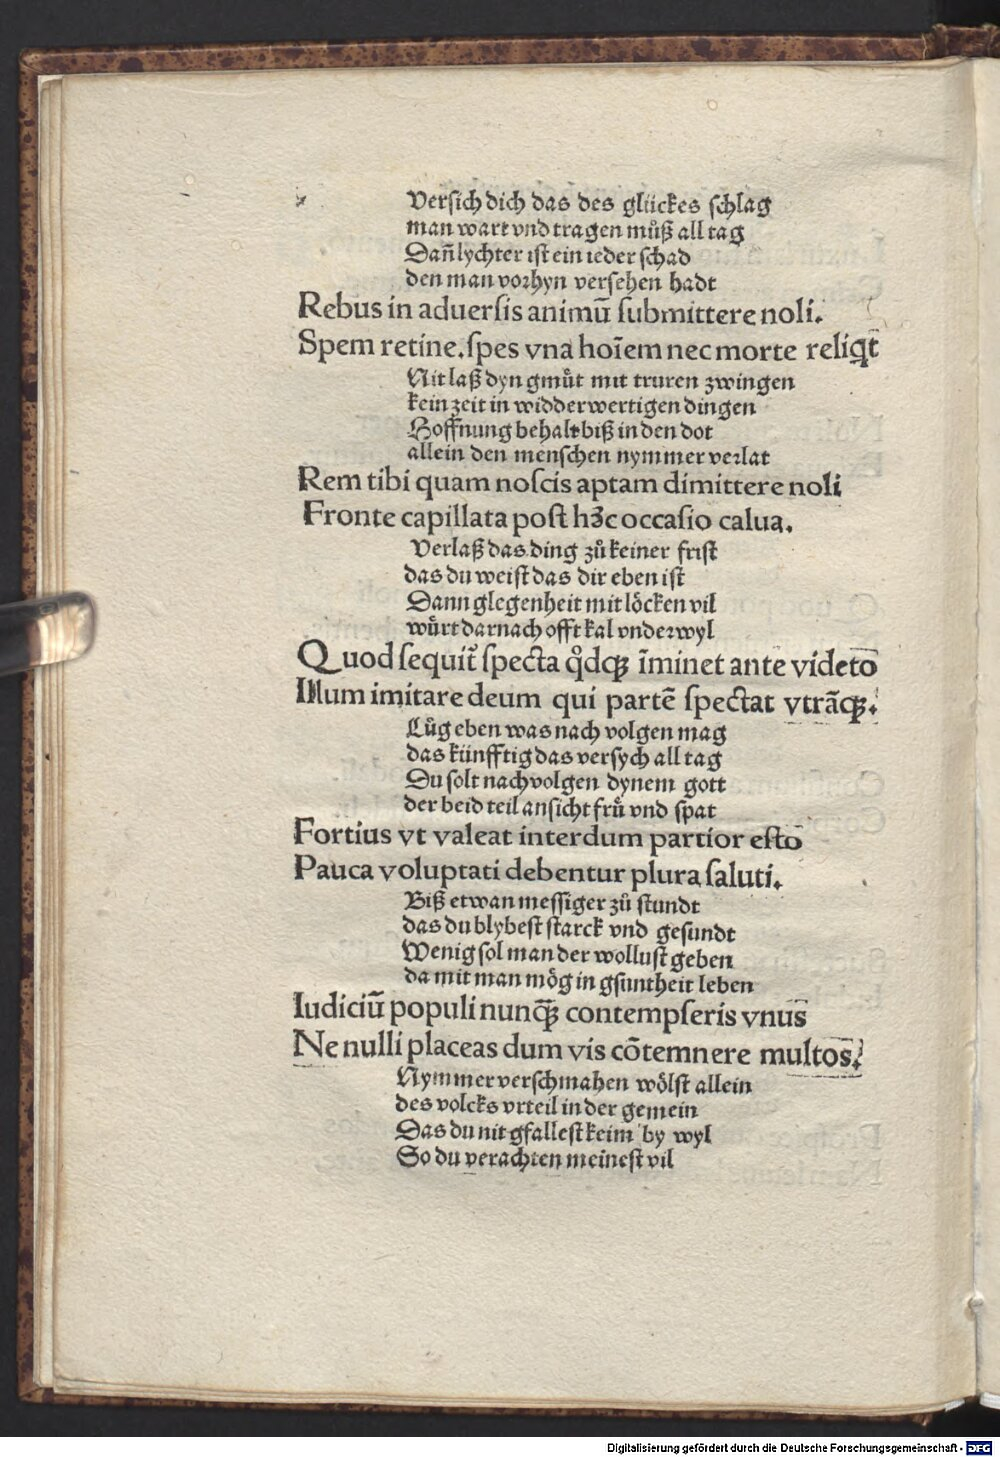 Versich dich das des glückes schlag
man wart vnd tragen muͦß all tag
Dañ lychter ist ein ieder schad
den man vorhyn versehen hadt
Rebus in aduersis animū submittere noli.
Spem retine. spes vna hoīem nec morte reliq̄t
Nit laß dyn gmuͤt mit truren zwingen
kein zeit in widderwertigen dingen
Hoffnung behalt biß in den dot
allein den menschen nymmer verlat
Rem tibi quam noscis aptam dimittere noli
Fronte capillata post hꝫc occasio calua.
Verlaß das ding zuͦ keiner frist
das du weist das dir eben ist
Dann glegenheit mit löcken vil
wuͤrt darnach offt kal vnderwyl
Quod sequit᷑ specta qͦdqꝫ īminet ante videto
Illum imitare deum qui partē spectat vtrāqꝫ.
Luͦg eben was nach volgen mag
das künfftig das versych all tag
Du solt nachvolgen dynem gott
der beid teil ansicht fruͤ vnd spat
Fortius vt valeat interdum partior esto
Pauca voluptati debentur plura saluti.
Biß etwan messiger zuͦ stundt
das du blybest starck vnd gesundt
Wenig sol man der wollust geben
da mit man mög in gsuntheit leben
Iudiciū populi nunq̄ꝫ contempseris vnus
Ne nulli placeas dum vis cōtemnere multos.
Nymmer verschmahen wölst allein
des volcks vrteil in der gemein
Das du nit gfallest keim by wyl
So du verachten meinest vil
Digitalisierung gefördert durch die Deutsche Forschungsgemeinschaft - DFG